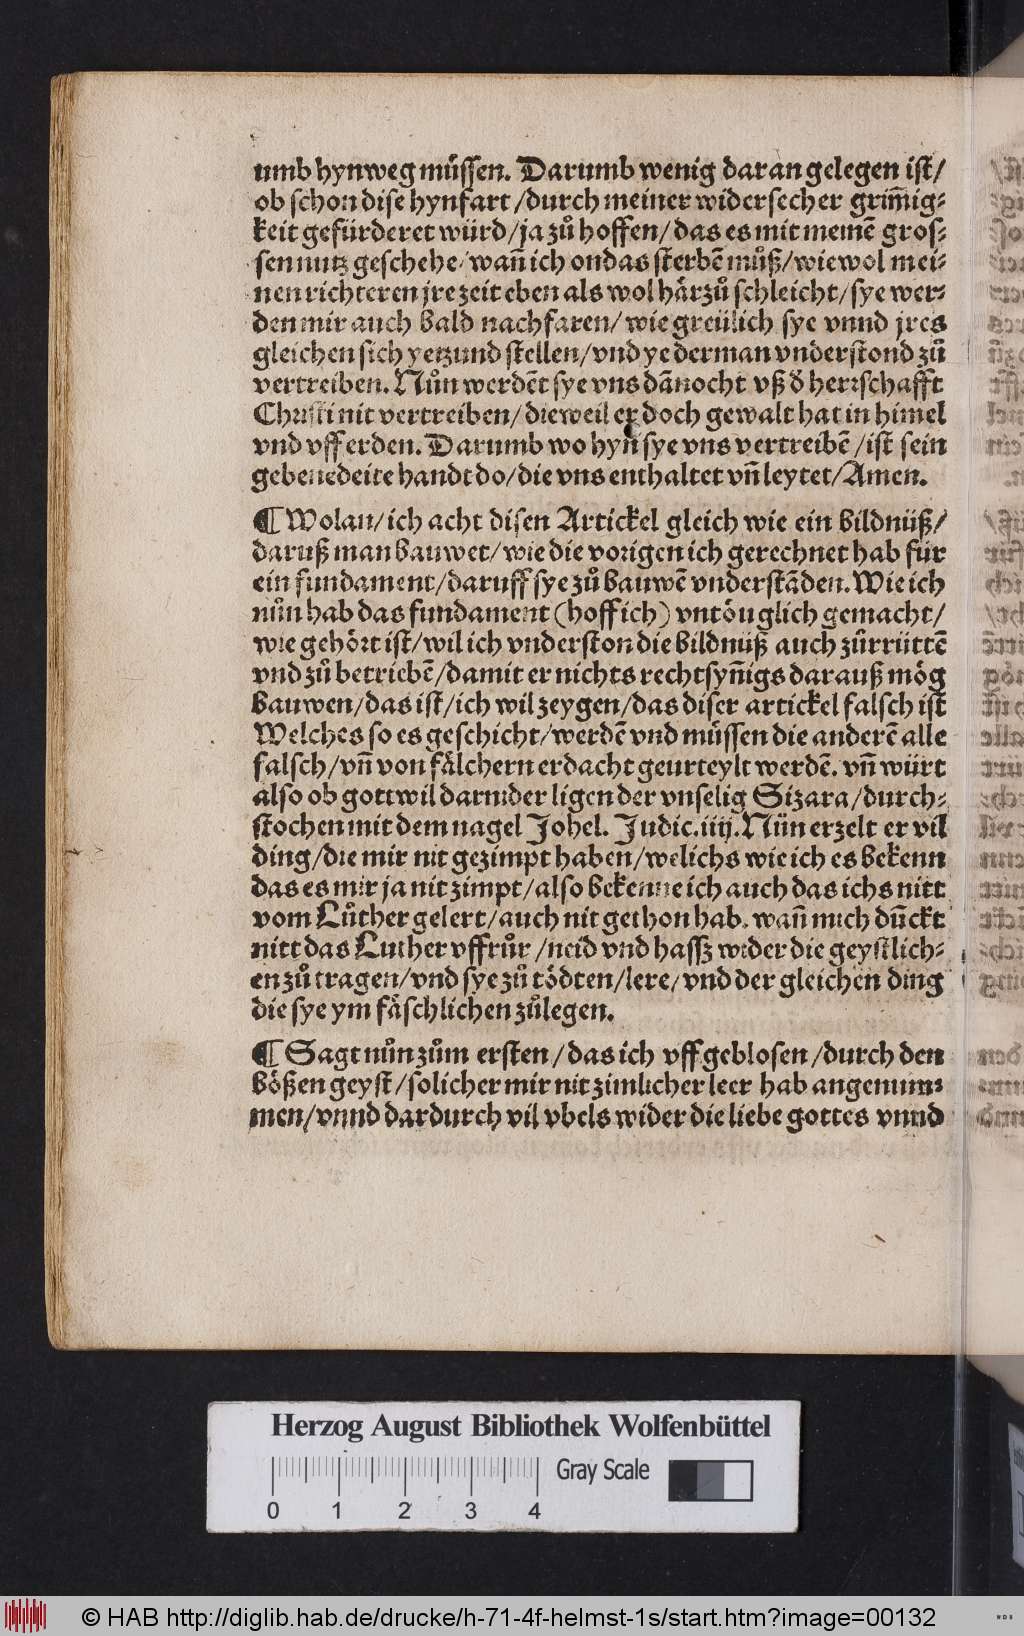 umb hynweg müssen. Darumb wenig daran gelegen ist/
ob schon dise hynfart/durch meiner widersecher grim̄ig⸗
keit gefürderet würd/ja zů hoffen/das es mit meinē gros⸗
sen nutz geschehe/wañ ich on das sterbē můß/wiewol mei⸗
nen richteren jre zeit eben als wol härzů schleicht/sye wer⸗
den mir auch bald nachfaren/wie greülich sye vnnd jres
gleichen sich yetzund stellen/vnd yederman vnderstond zů
vertreiben. Nůn werdēt sye vns dān̄ocht vß đ herrschafft
Christi nit vertreiben/dieweil er doch gewalt hat in himel
vnd vff erden. Darumb wo hyn̄ sye vns vertreibē/ist sein
gebenedeite handt do/die vns enthaltet vñ leytet/Amen.
¶ Wolan/ich acht disen Artickel gleich wie ein bildnüß/
daruß man bauwet/wie die vorigen ich gerechnet hab für
ein fundament/daruff sye zů bauwē vnderstāden. Wie ich
nůn hab das fundament (hoff ich) vntöuglich gemacht/
wie gehört ist/wil ich vnderston die bildnüß auch zůrrüttē
vnd zů betriebē/damit er nichts rechtsyn̄igs darauß mög
bauwen/das ist/ich wil zeygen/das diser artickel falsch ist
Welches so es geschicht/werdē vnd müssen die anderē alle
falsch/vñ von fälchern erdacht geurteylt werdē. vñ würt
also ob gott wil darnider ligen der vnselig Sizara/durch⸗
stochen mit dem nagel Johel. Judic. iiij. Nün erzelt er vil
ding/die mir nit gezimpt haben/welichs wie ich es bekenn
das es mir ja nit zimpt/also bekenne ich auch das ichs nitt
vom Lůther gelert/auch nit gethon hab. wañ mich dūckt
nitt das Luther vffrůr/neid vnd hassz wider die geystlich⸗
en zů tragen/vnd sye zů tödten/lere/vnd der gleichen ding
die sye ym fäschlichen zůlegen.
¶ Sagt nůn zům ersten/das ich vffgeblosen/durch den
bößen geyst/solicher mir nit zimlicher leer hab angenum⸗
men/vnnd dardurch vil vbels wider die liebe gottes vnnd
Herzog August Bibliothek Wolfenbüttel
Gray Scale
0 1 2 3 4
© HAB http://diglib.hab.de/drucke/h-71-4f-helmst-1s/start.htm?image=00132